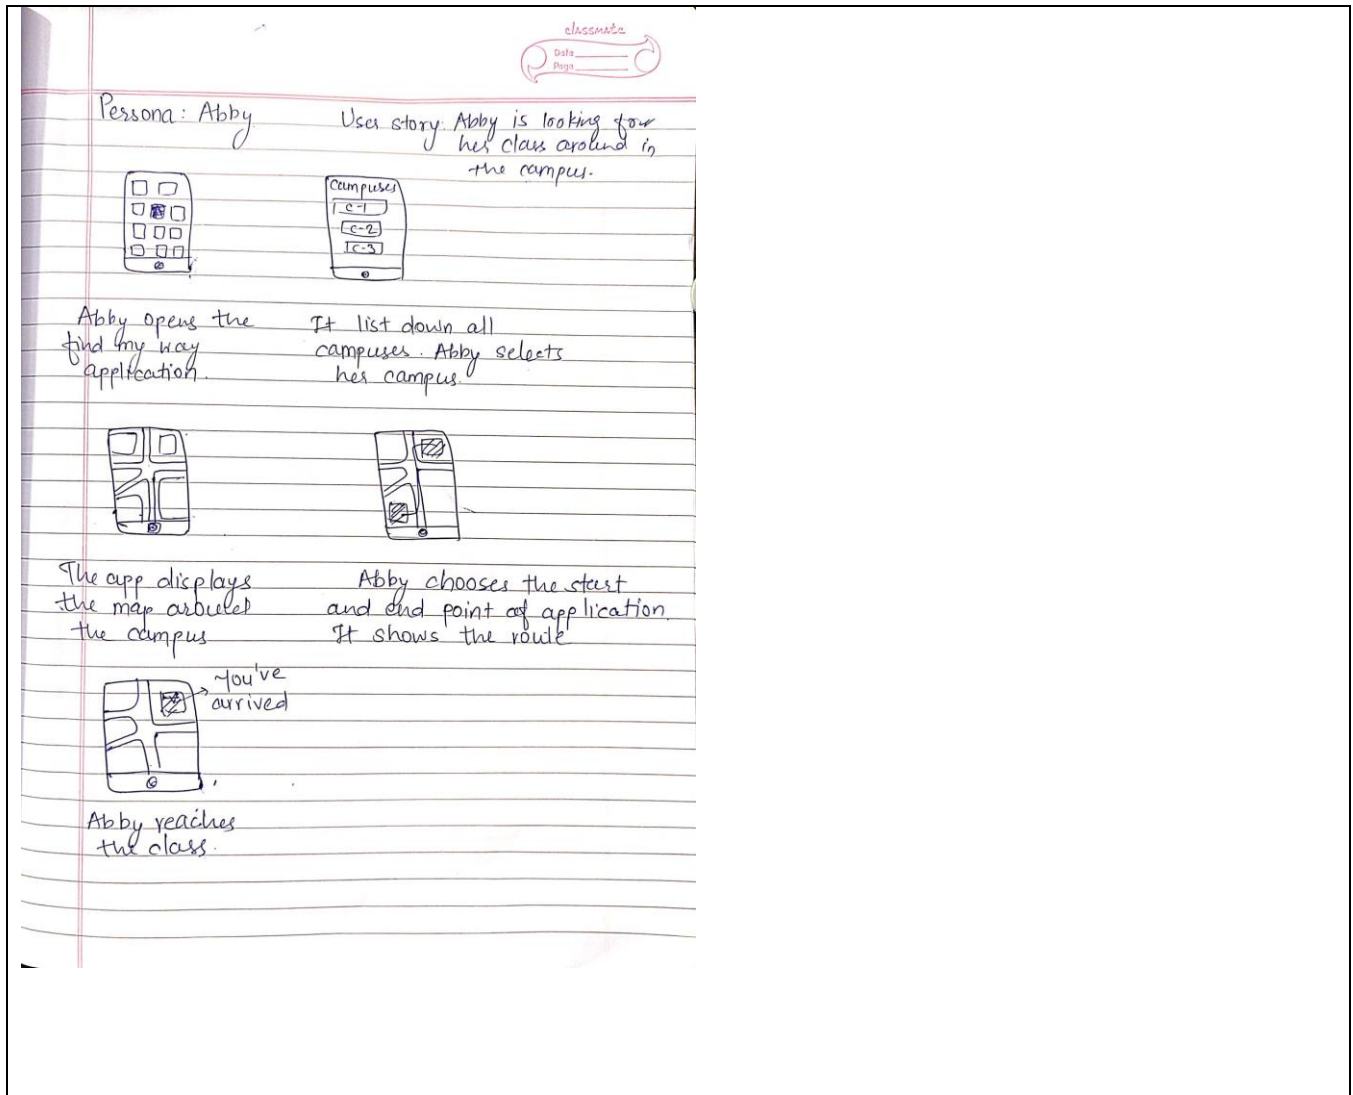 classmate
Date
Page
Persona: Abby
User story: Abby is looking for
her class around in
the campus.
Campuses
C-1
C-2
C-3
Abby opens the
find my way
application.
It list down all
campuses. Abby selects
her campus.
The app displays
the map around
the campus
Abby chooses the start
and end point of application.
It shows the route
You've
arrived
Abby reaches
the class.